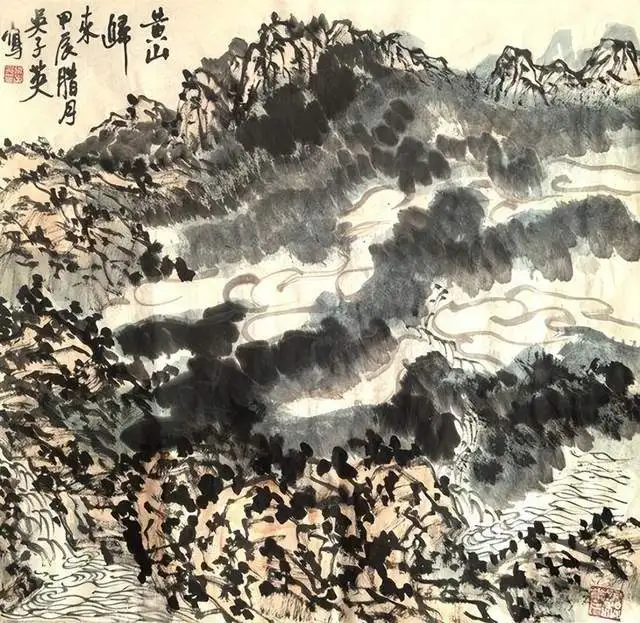 黄山
歸
来
甲辰腊月
吴子英
寫